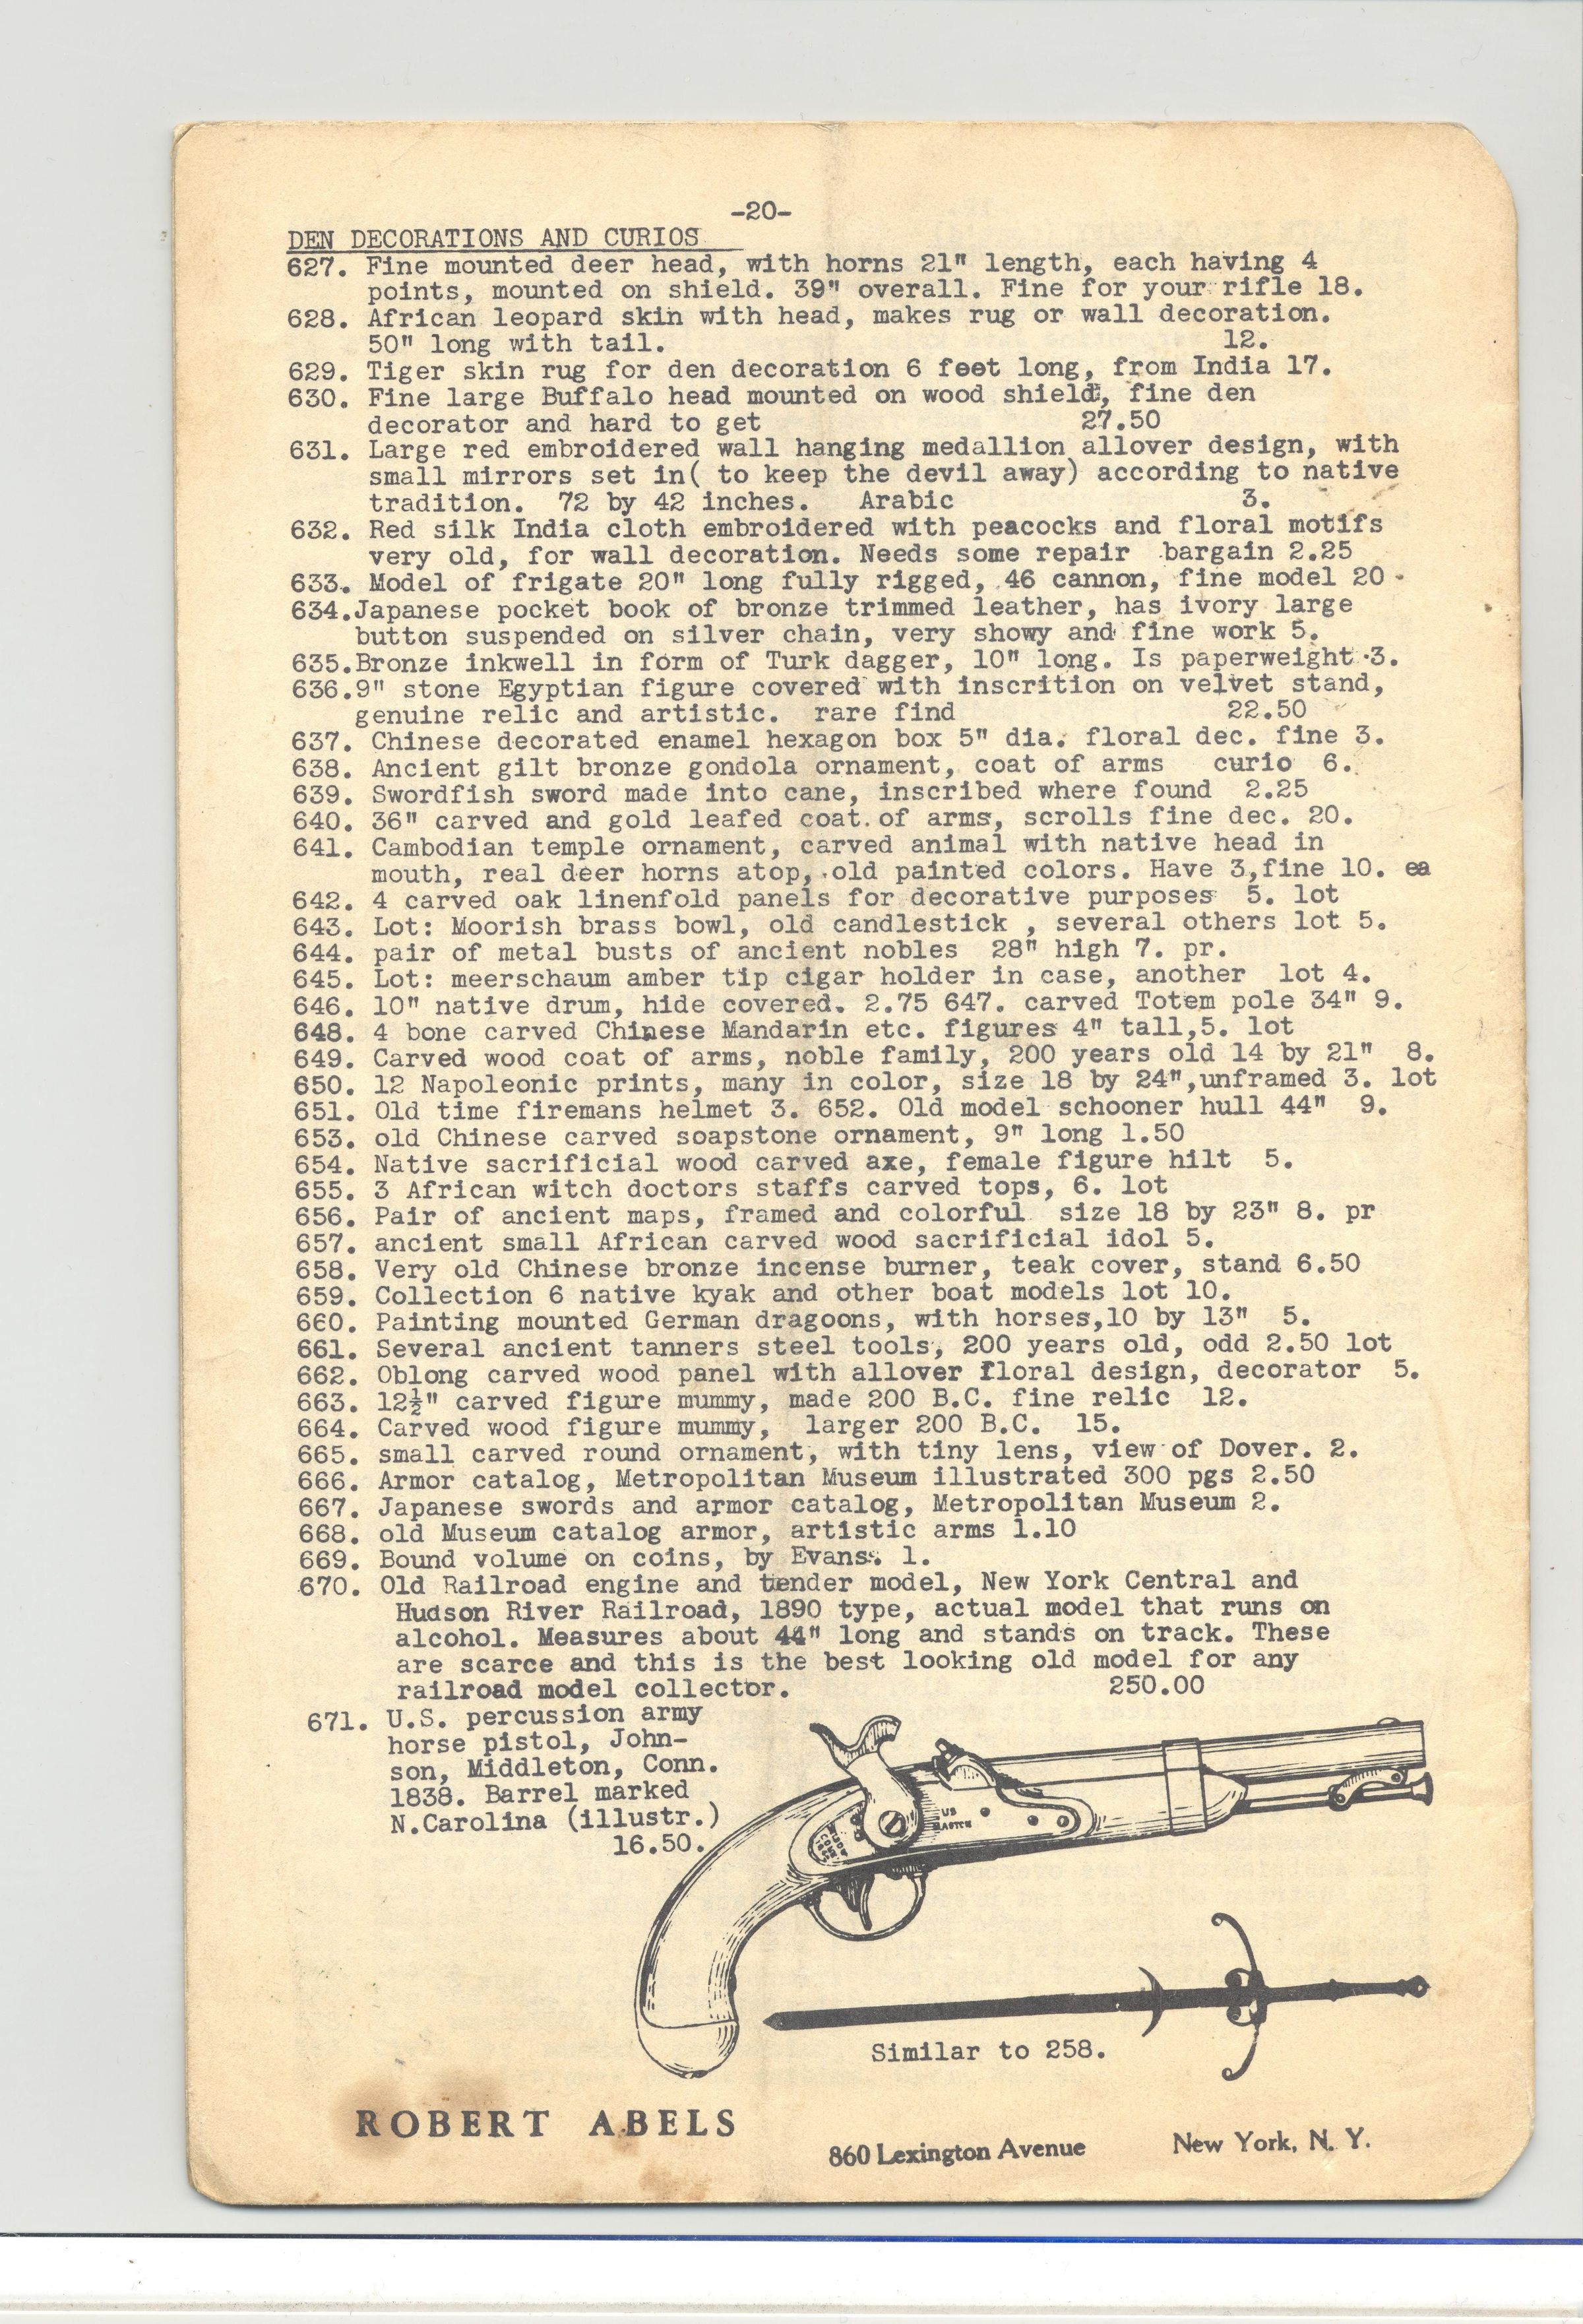 -20-
DEN DECORATIONS AND CURIOS
627. Fine mounted deer head, with horns 21" length, each having 4
points, mounted on shield. 39" overall. Fine for your rifle 18.
628. African leopard skin with head, makes rug or wall decoration.
50" long with tail. 12.
629. Tiger skin rug for den decoration 6 feet long, from India 17.
630. Fine large Buffalo head mounted on wood shield, fine den
decorator and hard to get 27.50
631. Large red embroidered wall hanging medallion allover design, with
small mirrors set in( to keep the devil away) according to native
tradition. 72 by 42 inches. Arabic 3.
632. Red silk India cloth embroidered with peacocks and floral motifs
very old, for wall decoration. Needs some repair bargain 2.25
633. Model of frigate 20" long fully rigged, 46 cannon, fine model 20.
634.Japanese pocket book of bronze trimmed leather, has ivory large
button suspended on silver chain, very showy and fine work 5.
635.Bronze inkwell in form of Turk dagger, 10" long. Is paperweight 3.
636.9" stone Egyptian figure covered with inscrition on velvet stand,
genuine relic and artistic. rare find 22.50
637. Chinese decorated enamel hexagon box 5" dia. floral dec. fine 3.
638. Ancient gilt bronze gondola ornament, coat of arms curio 6.
639. Swordfish sword made into cane, inscribed where found 2.25
640. 36" carved and gold leafed coat of arms, scrolls fine dec. 20.
641. Cambodian temple ornament, carved animal with native head in
mouth, real deer horns atop, old painted colors. Have 3,fine 10. ea
642. 4 carved oak linenfold panels for decorative purposes 5. lot
643. Lot: Moorish brass bowl, old candlestick , several others lot 5.
644. pair of metal busts of ancient nobles 28" high 7. pr.
645. Lot: meerschaum amber tip cigar holder in case, another lot 4.
646. 10" native drum, hide covered. 2.75 647. carved Totem pole 34" 9.
648. 4 bone carved Chinese Mandarin etc. figures 4" tall,5. lot
649. Carved wood coat of arms, noble family, 200 years old 14 by 21" 8.
650. 12 Napoleonic prints, many in color, size 18 by 24",unframed 3. lot
651. Old time firemans helmet 3. 652. Old model schooner hull 44" 9.
653. old Chinese carved soapstone ornament, 9" long 1.50
654. Native sacrificial wood carved axe, female figure hilt 5.
655. 3 African witch doctors staffs carved tops, 6. lot
656. Pair of ancient maps, framed and colorful size 18 by 23" 8. pr
657. ancient small African carved wood sacrificial idol 5.
658. Very old Chinese bronze incense burner, teak cover, stand 6.50
659. Collection 6 native kyak and other boat models lot 10.
660. Painting mounted German dragoons, with horses,10 by 13" 5.
661. Several ancient tanners steel tools, 200 years old, odd 2.50 lot
662. Oblong carved wood panel with allover floral design, decorator 5.
663. 12½" carved figure mummy, made 200 B.C. fine relic 12.
664. Carved wood figure mummy, larger 200 B.C. 15.
665. small carved round ornament, with tiny lens, view of Dover. 2.
666. Armor catalog, Metropolitan Museum illustrated 300 pgs 2.50
667. Japanese swords and armor catalog, Metropolitan Museum 2.
668. old Museum catalog armor, artistic arms 1.10
669. Bound volume on coins, by Evans. 1.
670. Old Railroad engine and tender model, New York Central and
Hudson River Railroad, 1890 type, actual model that runs on
alcohol. Measures about 44" long and stands on track. These
are scarce and this is the best looking old model for any
railroad model collector. 250.00
671. U.S. percussion army
horse pistol, John-
son, Middleton, Conn.
1838. Barrel marked
N.Carolina (illustr.)
16.50.
US
Similar to 258.
ROBERT ABELS
860 Lexington Avenue New York, N. Y.